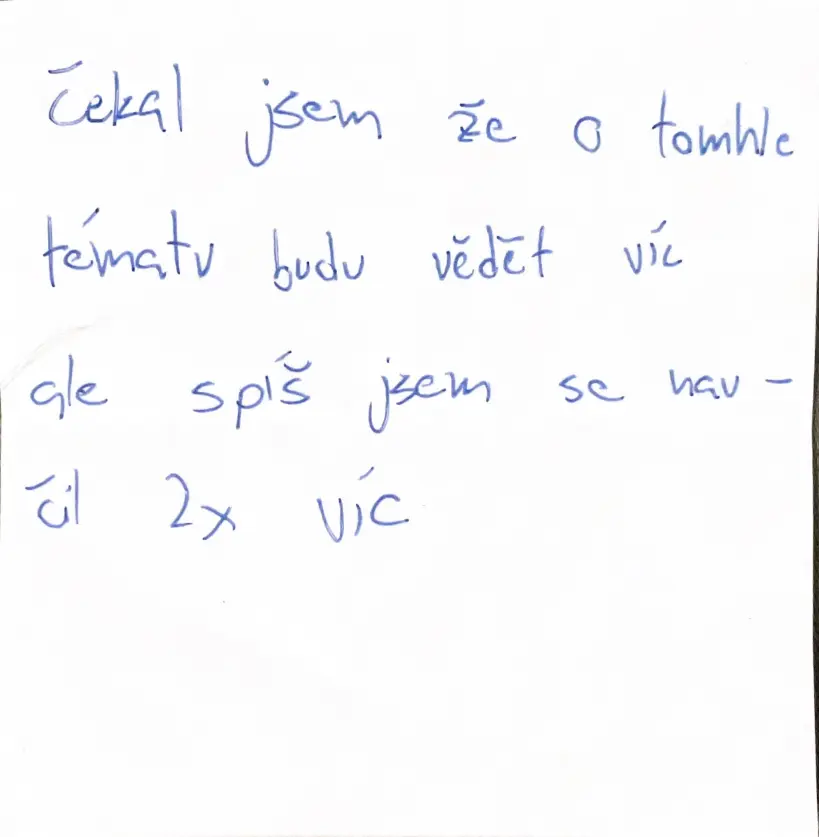 čekal jsem že o tomhle
tématu budu vědět víc
ale spíš jsem se nau-
čil 2x víc